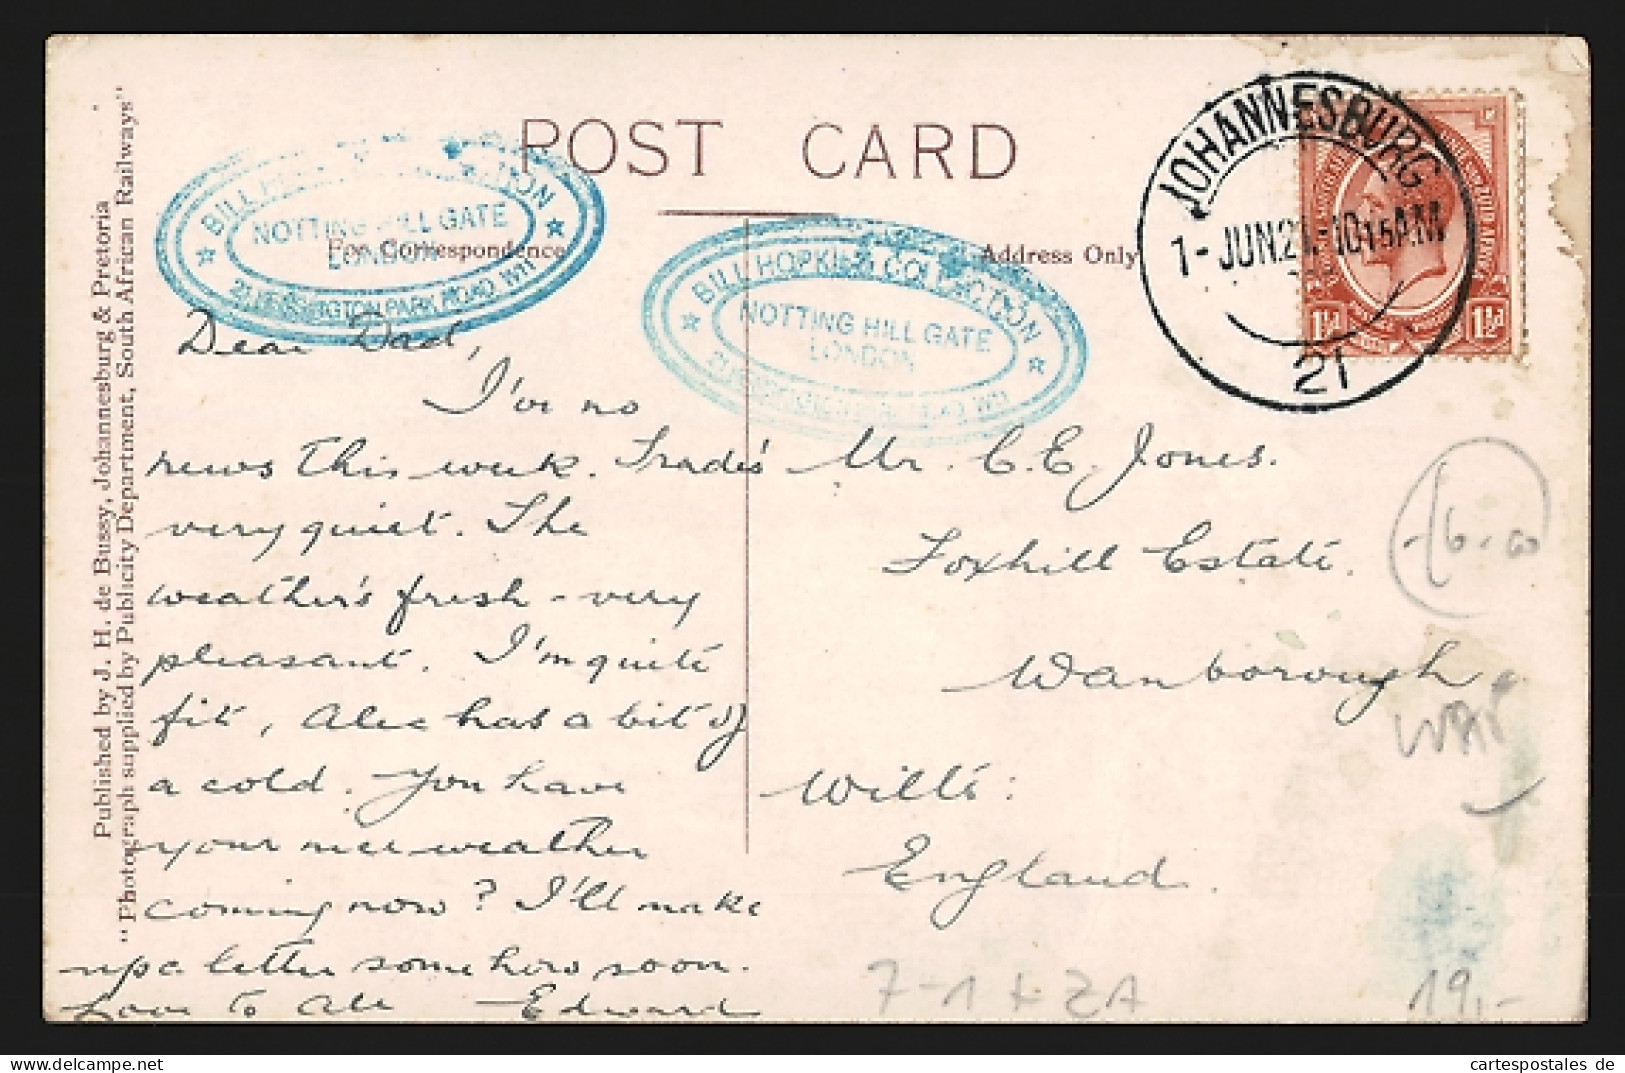 POST CARD
For Correspondence
Address Only
Published by J. H. de Bussy, Johannesburg & Pretoria
"Photograph supplied by Publicity Department, South African Railways"
BILL HOPKINS COLLECTION
NOTTING HILL GATE
LONDON
21, KENSINGTON PARK ROAD W11
BILL HOPKINS COLLECTION
NOTTING HILL GATE
LONDON
21 KENSINGTON PARK ROAD W11
JOHANNESBURG
1-JUN 21. 1015AM
21
1½d 1½d
Dear Dad,
I've no
news this week. Trade's
very quiet. The
weather's fresh - very
pleasant. I'm quite
fit, Alec has a bit of
a cold. You have
your nice weather
coming now? I'll make
up a letter somehow soon.
Love to all - Edward
Mr. C. E. Jones.
Foxhill Estate.
Wanborough
Wilts:
England.
7-1 + ZA
19,-
cartespostales de